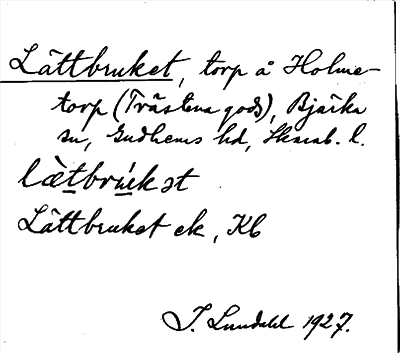 Lättbruket, torp å Holme-
torp (Trästena gods), Bjärka
sn, Gudhems hd, Skarab. l.
lὰtbrúkət
Lättbruket ek, Kb
I. Lundahl 1927.